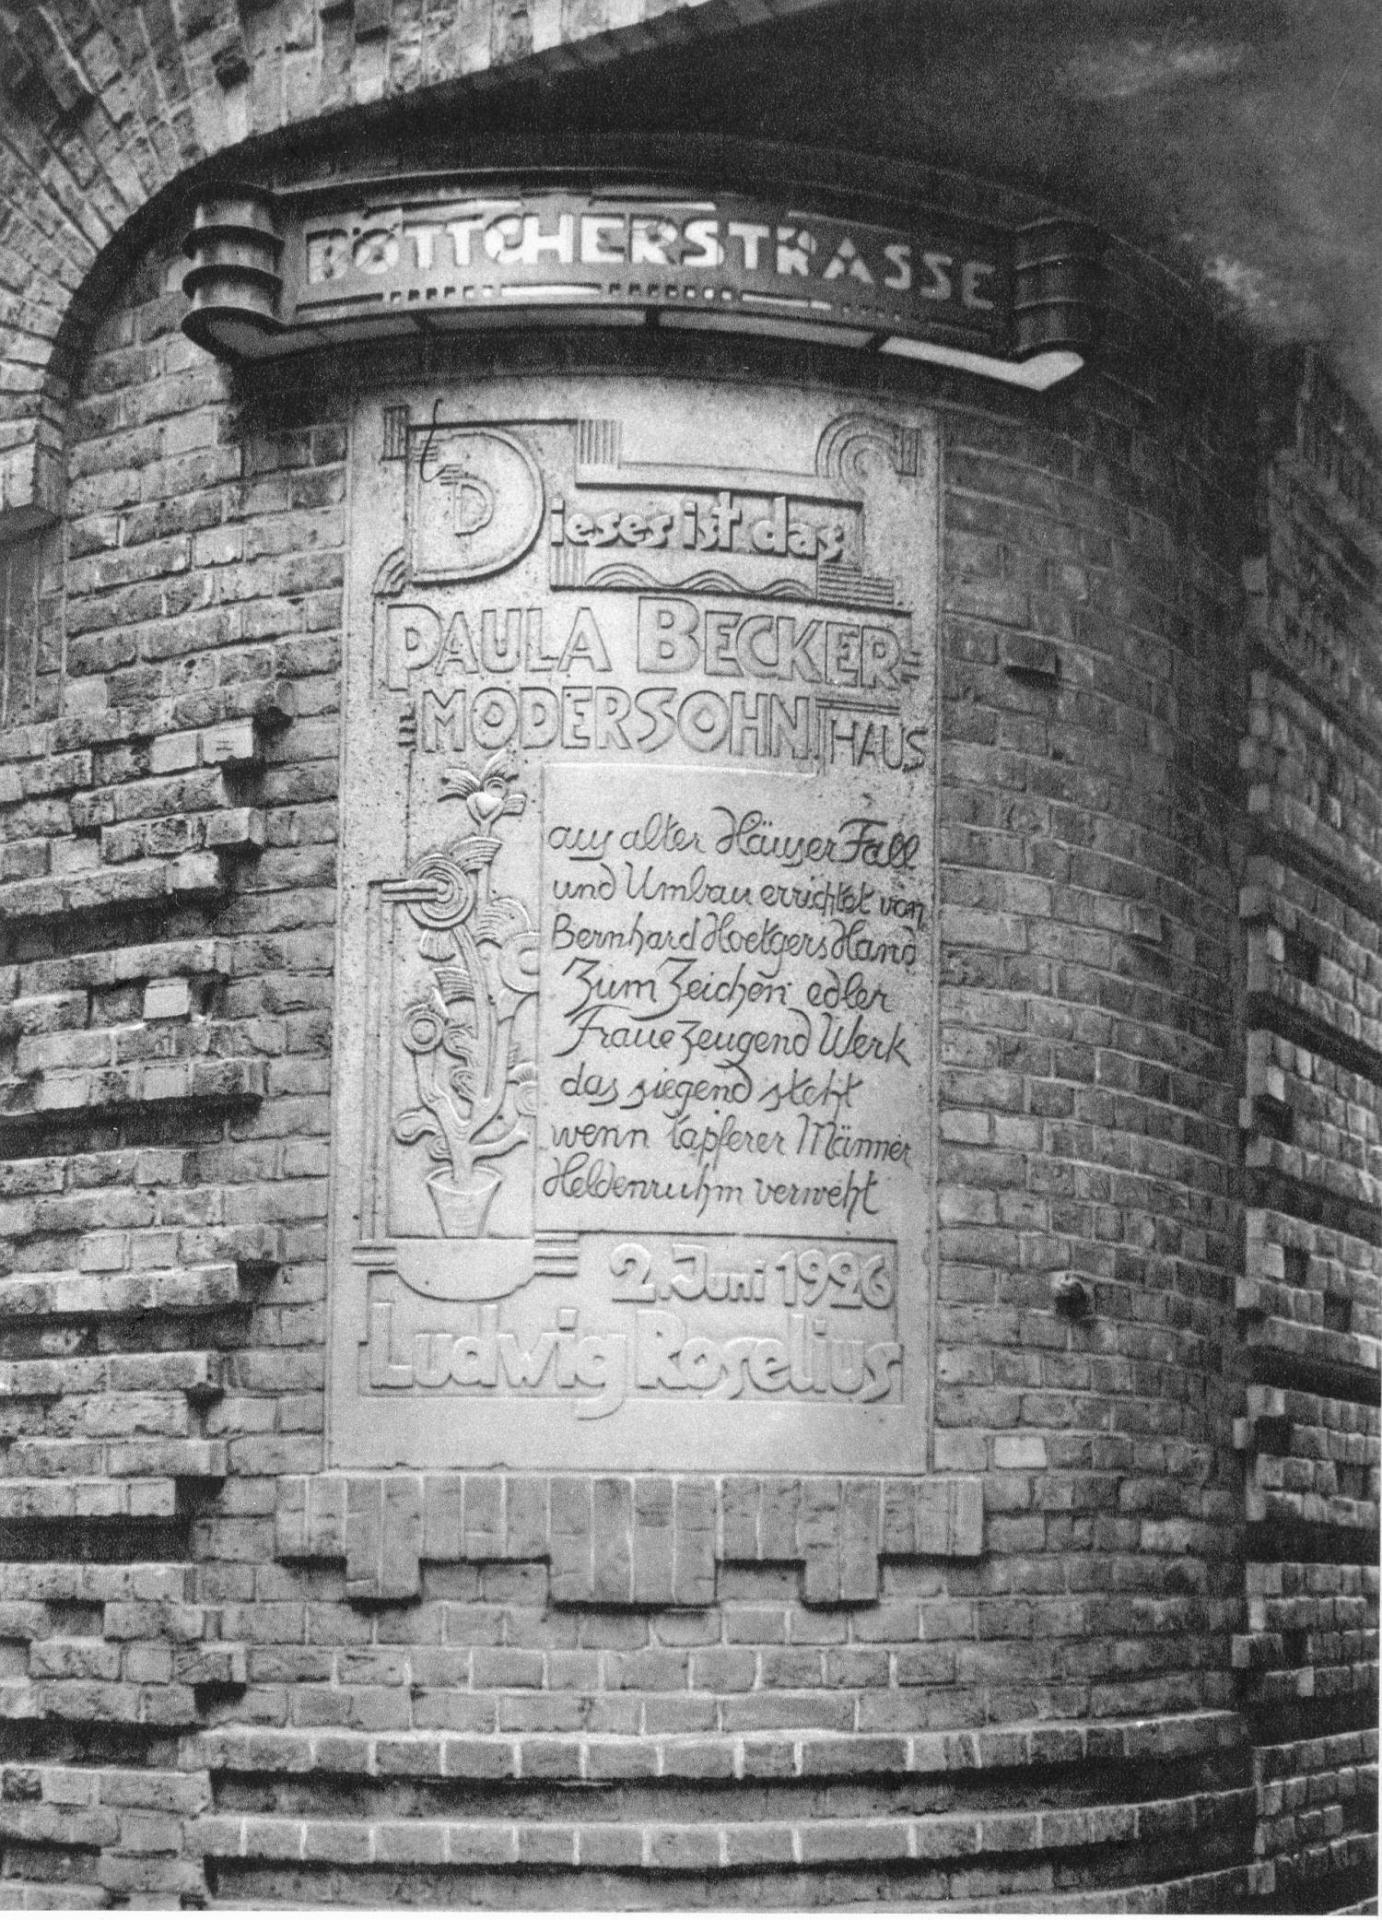 BÖTTCHERSTRASSE
Dieses ist das
PAULA BECKER
MODERSOHN HAUS
aus alter Häuser Fall
und Umbau errichtet von
Bernhard Hoetgers Hand
Zum Zeichen edler
Fraue zeugend Werk
das siegend steht
wenn tapferer Männer
Heldenruhm verweht
2. Juni 1926
Ludwig Roselius